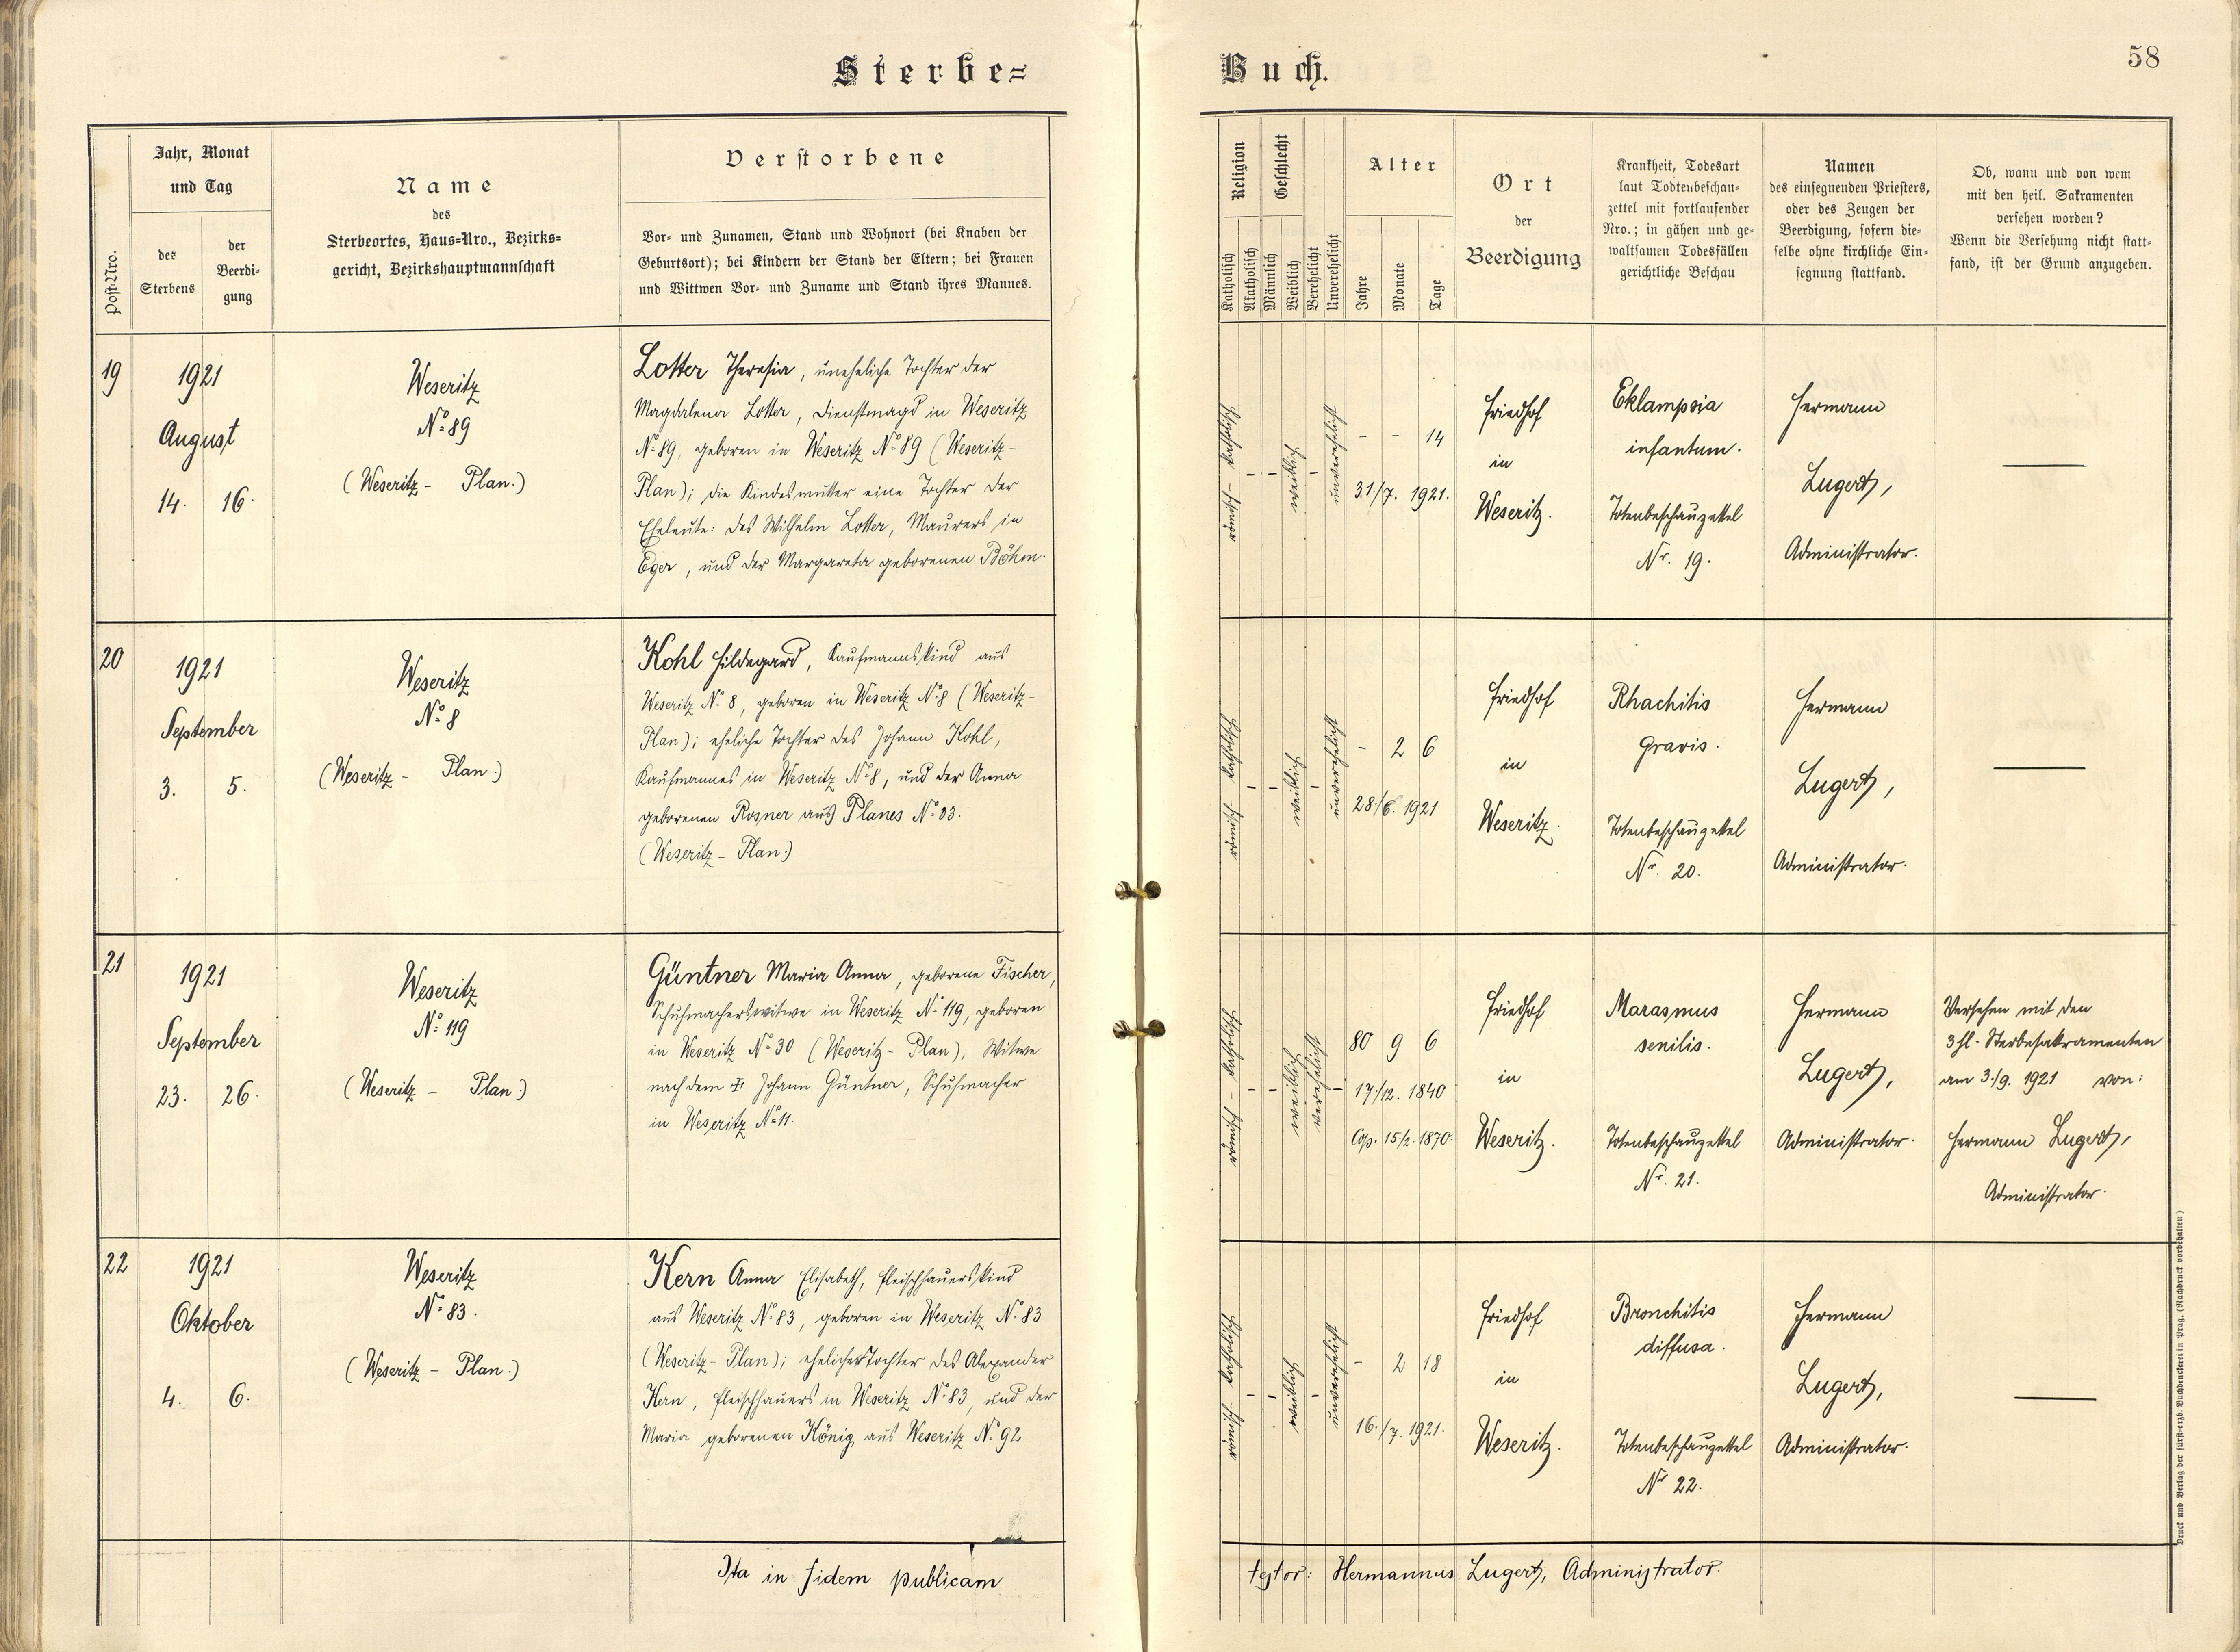 Sterbe=
Buch.
58
Post-Nro.
Jahr, Monat
und Tag
des
Sterbens
der
Beerdi-
gung
Name
des
Sterbeortes, Haus=Nro., Bezirks=
gericht, Bezirkshauptmannschaft
Verstorbene
Vor- und Zunamen, Stand und Wohnort (bei Knaben der
Geburtsort); bei Kindern der Stand der Eltern; bei Frauen
und Wittwen Vor- und Zuname und Stand ihres Mannes.
Religion
Katholisch
Akatholisch
Geschlecht
Männlich
Weiblich
Verehelicht
Unverehelicht
Alter
Jahre
Monate
Tage
Ort
der
Beerdigung
Krankheit, Todesart
laut Todtenbeschau-
zettel mit fortlaufender
Nro.; in gähen und ge-
waltsamen Todesfällen
gerichtliche Beschau
Namen
des einsegnenden Priesters,
oder des Zeugen der
Beerdigung, sofern die-
selbe ohne kirchliche Ein-
segnung stattfand.
Ob, wann und von wem
mit den heil. Sakramenten
versehen worden?
Wenn die Versehung nicht statt-
fand, ist der Grund anzugeben.
19
1921
August
14. 16.
Weseritz
No 89
(Weseritz - Plan.)
Lotter Theresia, uneheliche Tochter der
Magdalena Lotter, Dienstmagd in Weseritz
No 89, geboren in Weseritz No 89 (Weseritz-
Plan); die Kindesmutter eine Tochter der
Eheleute: des Wilhelm Lotter, Maurers in
Eger, und der Margareta geborenen Böhm.
römisch - katholisch
- -
weiblich
-
unverehelicht
- - 14
31./7. 1921.
Friedhof
in
Weseritz.
Eklampsia
infantum.
Totenbeschauzettel
Nr. 19.
Hermann
Lugert,
Administrator.
—
20
1921
September
3. 5.
Weseritz
No 8
(Weseritz - Plan.)
Kohl Hildegard, Kaufmannskind aus
Weseritz No 8, geboren in Weseritz No 8 (Weseritz-
Plan); eheliche Tochter des Johann Kohl,
Kaufmannes in Weseritz No 8, und der Anna
geborenen Rosner aus Planes No 33.
(Weseritz - Plan.)
römisch katholisch
- -
weiblich
-
unverehelicht
- 2 6
28./6. 1921
Friedhof
in
Weseritz.
Rhachitis
gravis.
Totenbeschauzettel
Nr. 20.
Hermann
Lugert,
Administrator.
—
21
1921
September
23. 26.
Weseritz
No 119
(Weseritz - Plan.)
Güntner Maria Anna, geborene Fischer,
Schuhmacherswitwe in Weseritz No 119, geboren
in Weseritz No 30 (Weseritz - Plan); Witwe
nach dem ✠ Johann Güntner, Schuhmacher
in Weseritz No 11.
römisch - katholisch
- -
weiblich
verehelicht
-
80 9 6
17./12. 1840
Cop. 15/2. 1870.
Friedhof
in
Weseritz.
Marasmus
senilis.
Totenbeschauzettel
Nr. 21.
Hermann
Lugert,
Administrator.
Versehen mit den
3 hl. Sterbesakramenten
am 3./9. 1921 von:
Hermann Lugert,
Administrator.
22
1921
Oktober
4. 6.
Weseritz
No 83.
(Weseritz - Plan.)
Kern Anna Elisabeth, Fleischhauerskind
aus Weseritz No 83, geboren in Weseritz No 83
(Weseritz - Plan); eheliche Tochter des Alexander
Kern, Fleischhauers in Weseritz No 83, und der
Maria geborenen König aus Weseritz No 92
römisch katholisch
- -
weiblich
-
unverehelicht
- 2 18
16./7. 1921.
Friedhof
in
Weseritz.
Bronchitis
diffusa.
Totenbeschauzettel
Nr 22.
Hermann
Lugert,
Administrator.
—
Ita in fidem publicam
testor: Hermannus Lugert, Administrator.
Druck und Verlag der fürst-erzb. Buchdruckerei in Prag. (Nachdruck vorbehalten)